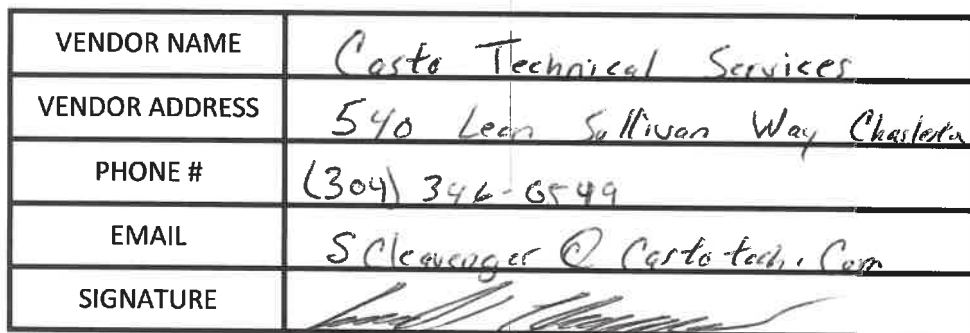 VENDOR NAME Casto Technical Services
VENDOR ADDRESS 540 Leon Sullivan Way Charleston
PHONE # (304) 346-0549
EMAIL SCleavenger@Casto-tech.Com
SIGNATURE